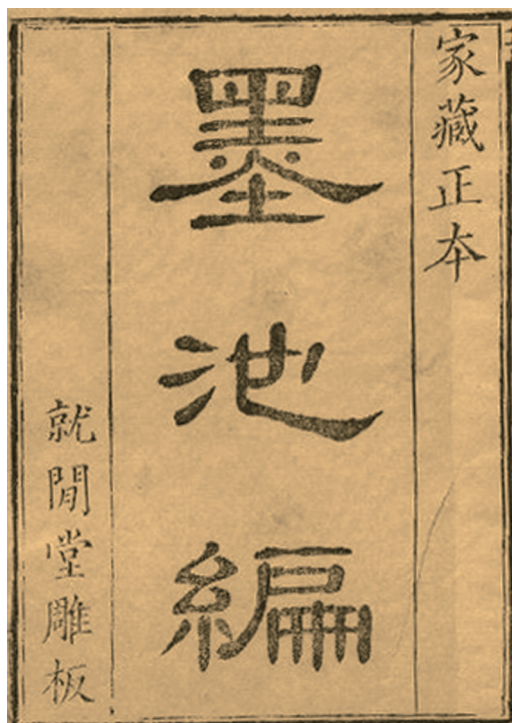 家藏正本
墨池編
就閒堂雕板